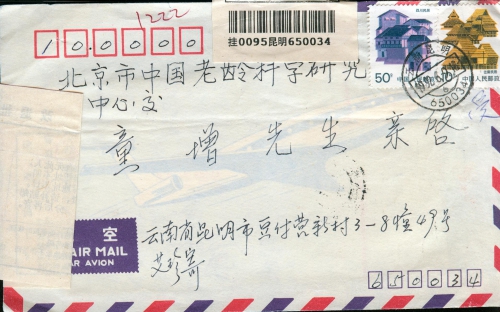 1222
100000
挂0095昆明650034
50分
中国人民邮政
北京市中国老龄科学研究
中心交
童增先生亲启
650034
云南省昆明市豆付营新村3-8幢49号
艾珍寄
空
AIR MAIL
PAR AVION
650034